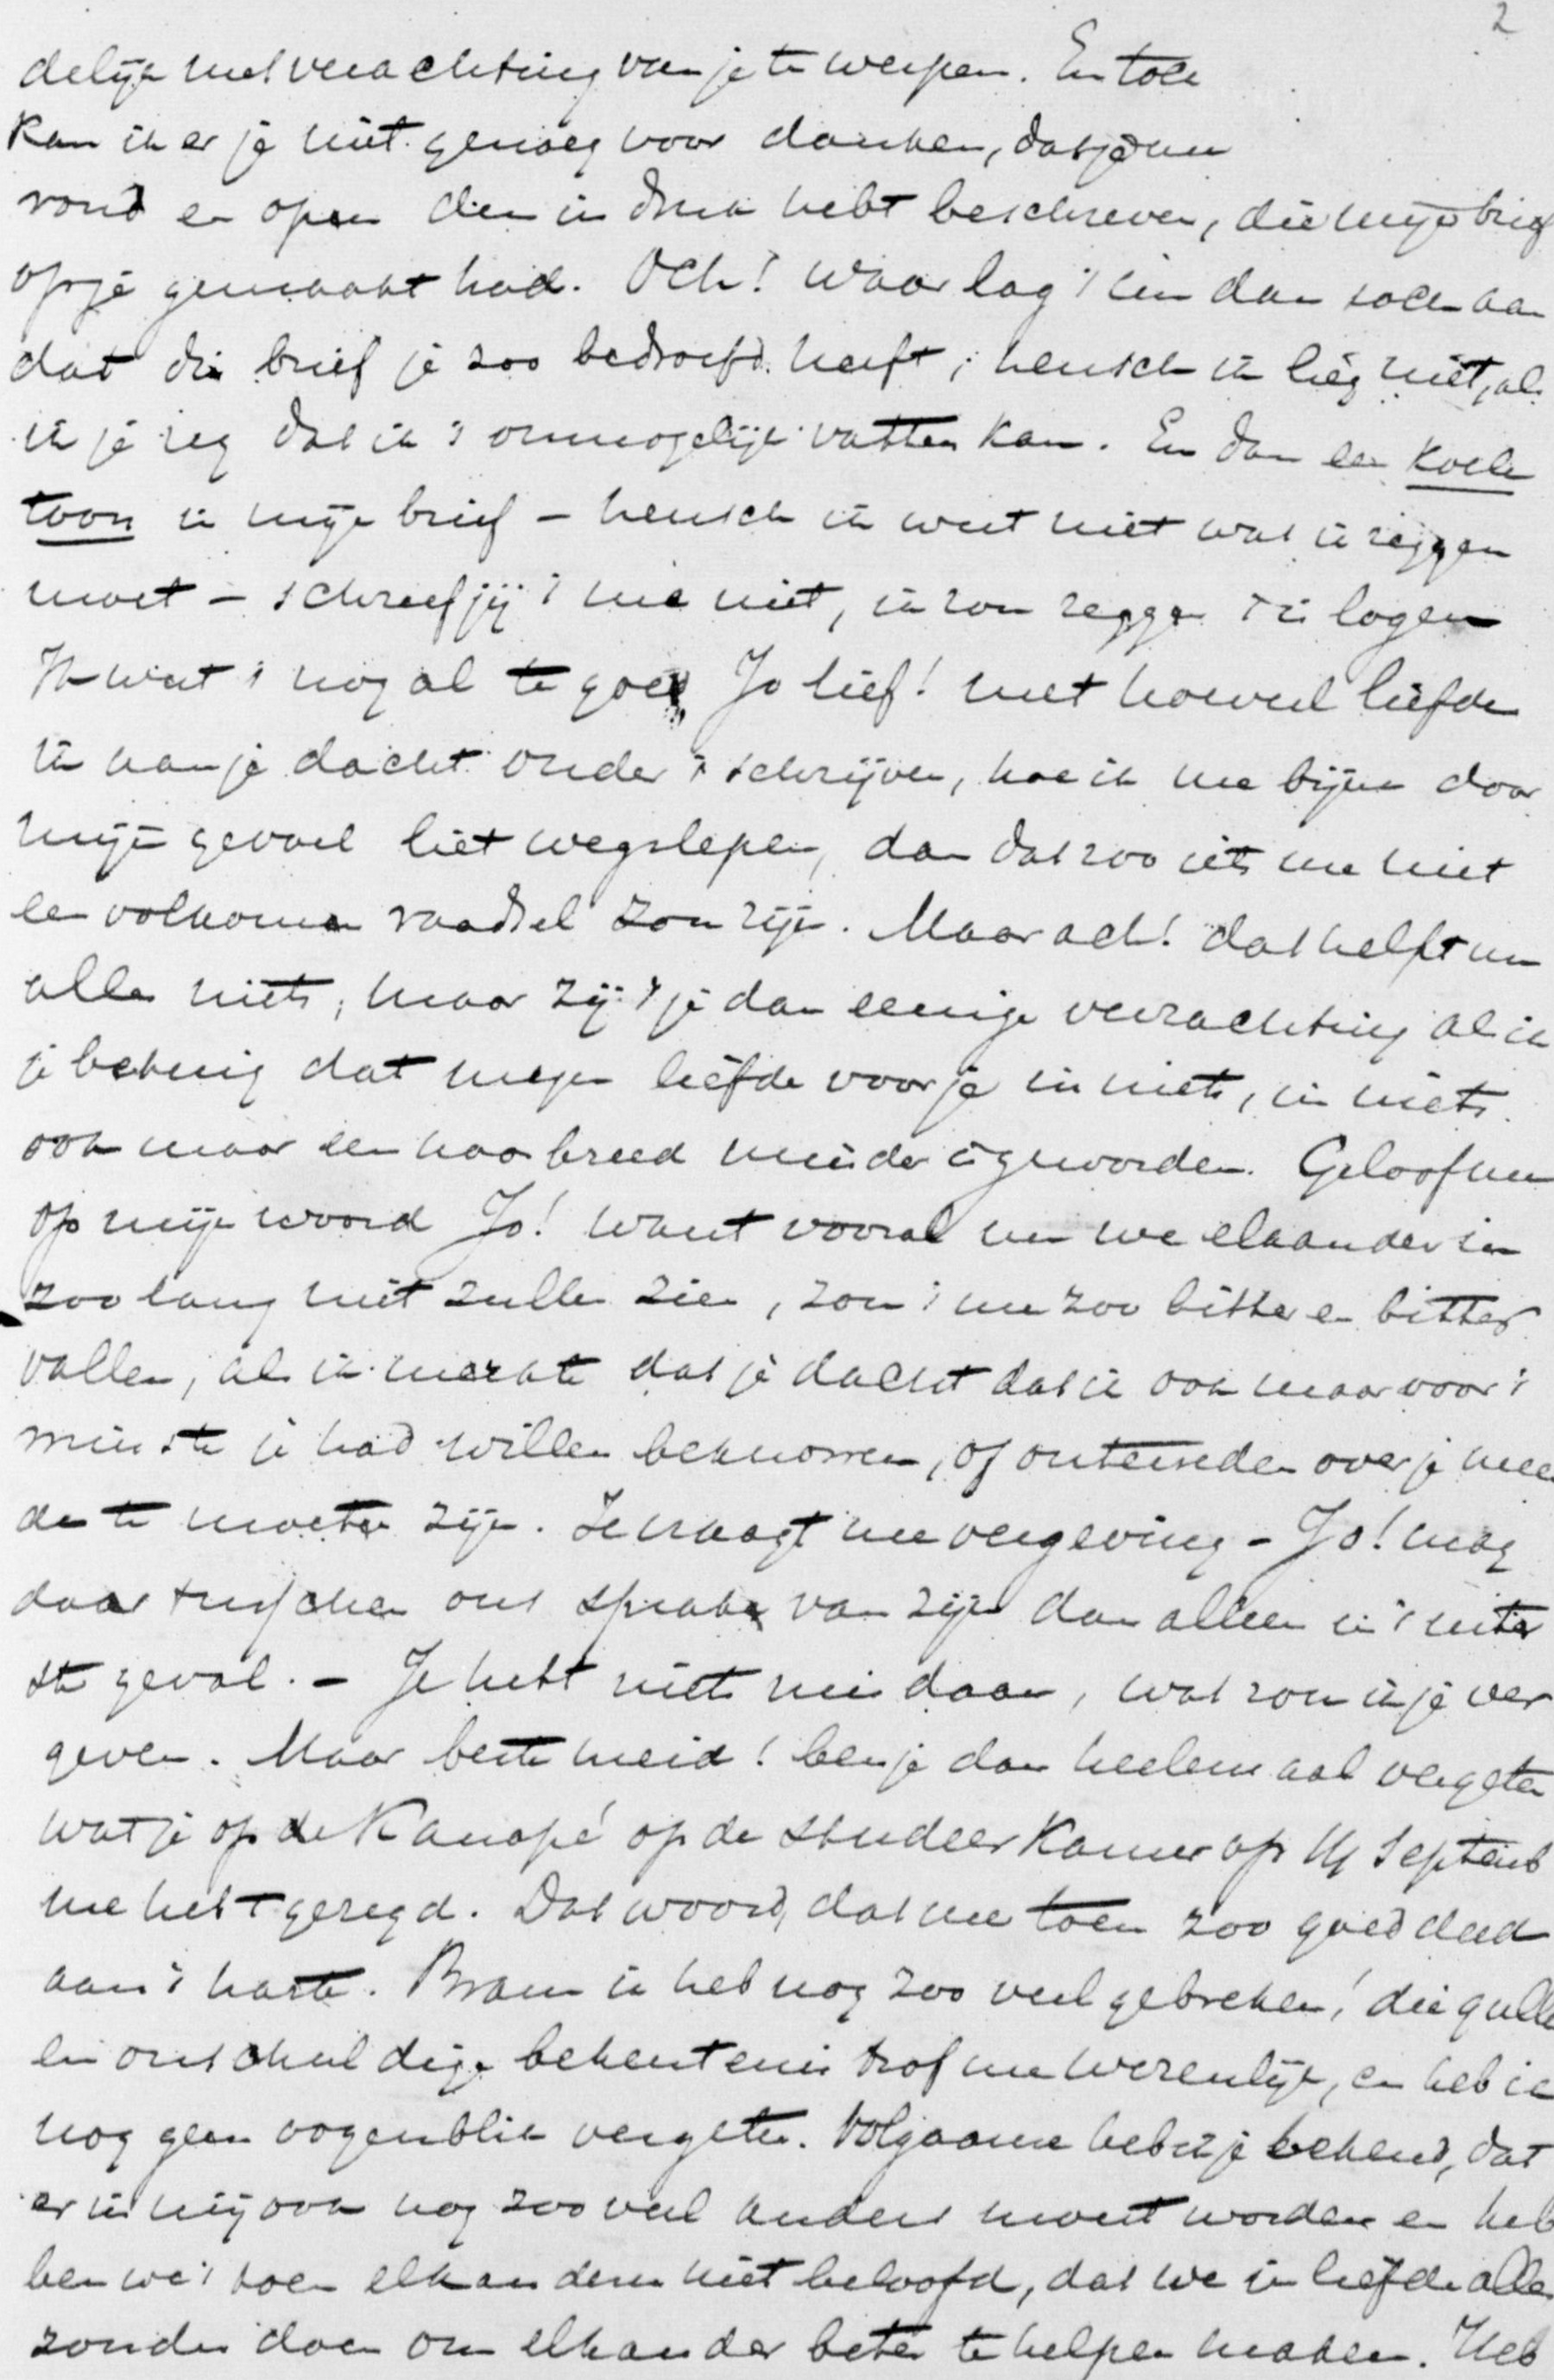 2
delijk met verachting van je te werpen. En toch
Kan ik er je niet genoeg voor danken, dat je me
rond en open den indruk hebt beschreven, die mijn brief
op je gemaakt had. Och! waar lag 't em dan toch aan
dat die brief je zoo bedroefd heeft; heusch ik lieg niet, als
ik je zeg dat ik 't onmogelijk vatten kan. En dan een koele
toon in mijn brief – heusch ik weet niet wat ik zeggen
moet – schreef jij 't me niet, ik zou zeggen 't is logen
Ik weet 't nog al te goed Jo lief! met hoeveel liefde
ik aan je dacht onder 't schrijven, hoe ik me bijna door
mijn gevoel liet wegslepen, dan dat zoo iets me niet
een volkomen raadsel zou zijn. Maar ach! dat helpt nu
alles niets, maar zij 't je dan eenige verzachting als ik
je betuig dat mijn liefde voor je in niets, in niets
ook maar een haarbreed minder is geworden. Geloof me
op mijn woord Jo! want vooral nu we elkander in
zoo lang niet zullen zien, zou 't me zoo bitter en bitter
vallen, als ik merkte dat je dacht dat ik ook maar voor 't
minste je had willen beknorren, of ontevreden over je meen
de te moeten zijn. Je vraagt me vergeving – Jo! mag
daar tusschen ons sprake van zijn dan alleen in 't uiter
ste geval. – Je hebt niets misdaan, wat zou ik je ver
geven. Maar beste meid! ben je dan heelemaal vergeten
wat je op de Kanapé op de studeerkamer op 14 Septemb
me hebt gezegd. Dat woord, dat me toen zoo goed deed
aan 't harte. Bram ik heb nog zoo veel gebreken! die gulle
en onschuldige bekentenis trof me wezenlijk, en heb ik
nog geen oogenblik vergeten. Volgaarne heb ik je bekend, dat
er in mij ook nog zooveel anders moest worden en heb
ben we 't toen elkanderen niet beloofd, dat we in liefde alles
zouden doen om elkander beter te helpen maken. Heb